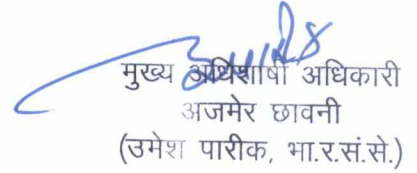 मुख्य अधिशाषी अधिकारी
अजमेर छावनी
(उमेश पारीक, भा.र.सं.से.)